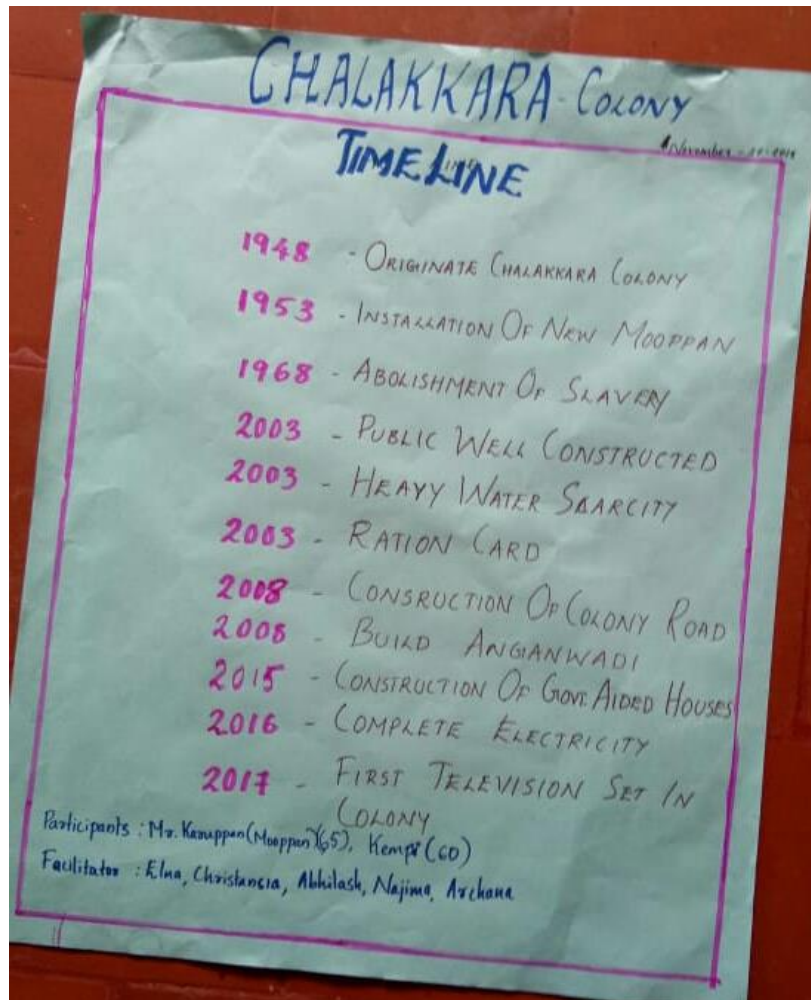 CHALAKKARA - COLONY
November - 2019
TIMELINE
1948 - ORIGINATE CHALAKKARA COLONY
1953 - INSTALLATION OF NEW MOOPPAN
1968 - ABOLISHMENT OF SLAVERY
2003 - PUBLIC WELL CONSTRUCTED
2003 - HEAVY WATER SAARCITY
2003 - RATION CARD
2008 - CONSRUCTION OF COLONY ROAD
2008 - BUILD ANGANWADI
2015 - CONSTRUCTION OF GOVT. AIDED HOUSES
2016 - COMPLETE ELECTRICITY
2017 - FIRST TELEVISION SET IN
COLONY
Participants : Mr. Karuppan (Mooppan) (65), Kempi (60)
Facilitator : Elna, Christancia, Abhilash, Najima, Archana